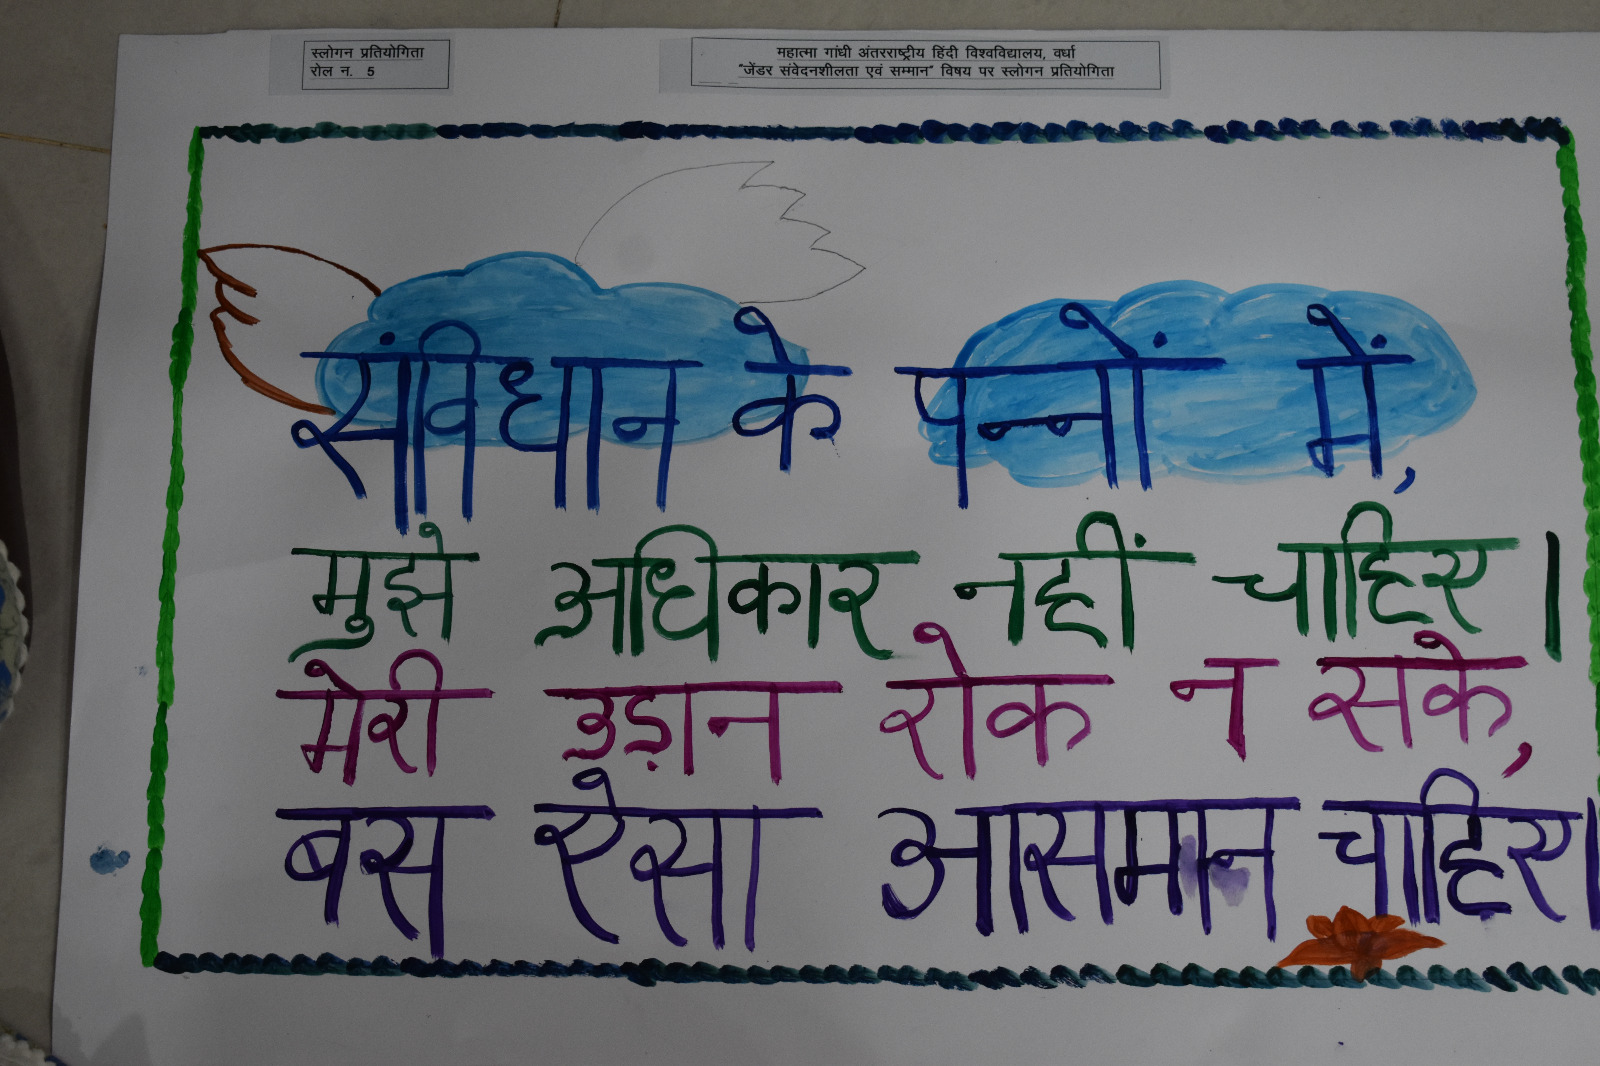 स्लोगन प्रतियोगिता
रोल न. 5
महात्मा गांधी अंतरराष्ट्रीय हिंदी विश्वविद्यालय, वर्धा
"जेंडर संवेदनशीलता एवं सम्मान" विषय पर स्लोगन प्रतियोगिता
संविधान के पन्नों में,
मुझे अधिकार नहीं चाहिए।
मेरी उड़ान रोक न सके,
बस ऐसा आसमान चाहिए।